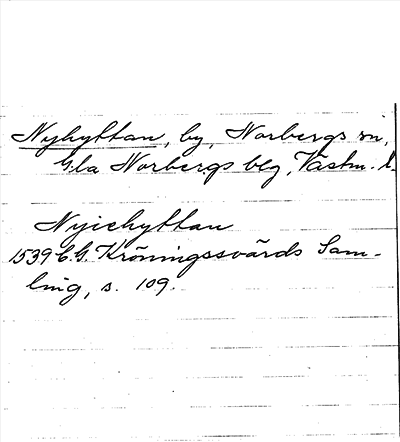 Nyhyttan, by, Norbergs sn,
Gla Norbergs blg, Västm. l.
Nyiehyttan
1539 C.G. Kröningssvärds Sam-
ling, s. 109.